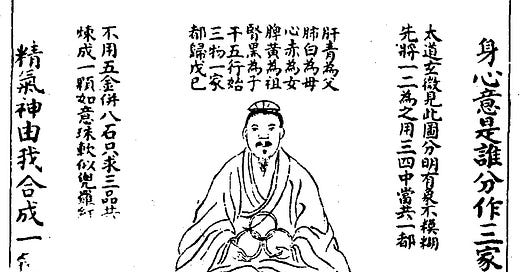 身心意是誰分作三家
太道玄微見此圖分明有象不模糊
先將一二為之用三四中當共一都
肝青為父
肺白為母
心赤為女
脾黃為祖
腎黑為子
子五行始
三物一家
都歸戊己
不用五金併八石只求三品共
煉成一顆如意珠軟似兜羅紅
精氣神由我合成一